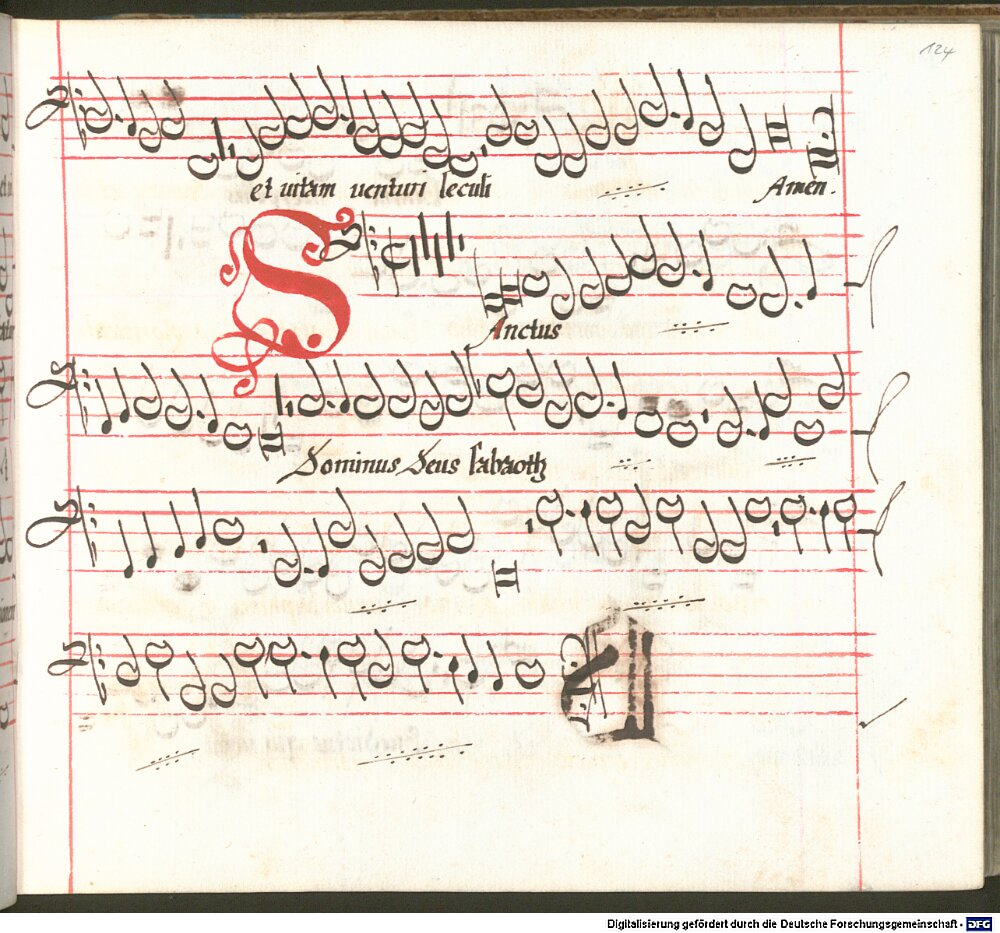 124
et uitam uenturi seculi Amen.
SAnctus
Dominus Deus sabaoth
Digitalisierung gefördert durch die Deutsche Forschungsgemeinschaft - DFG